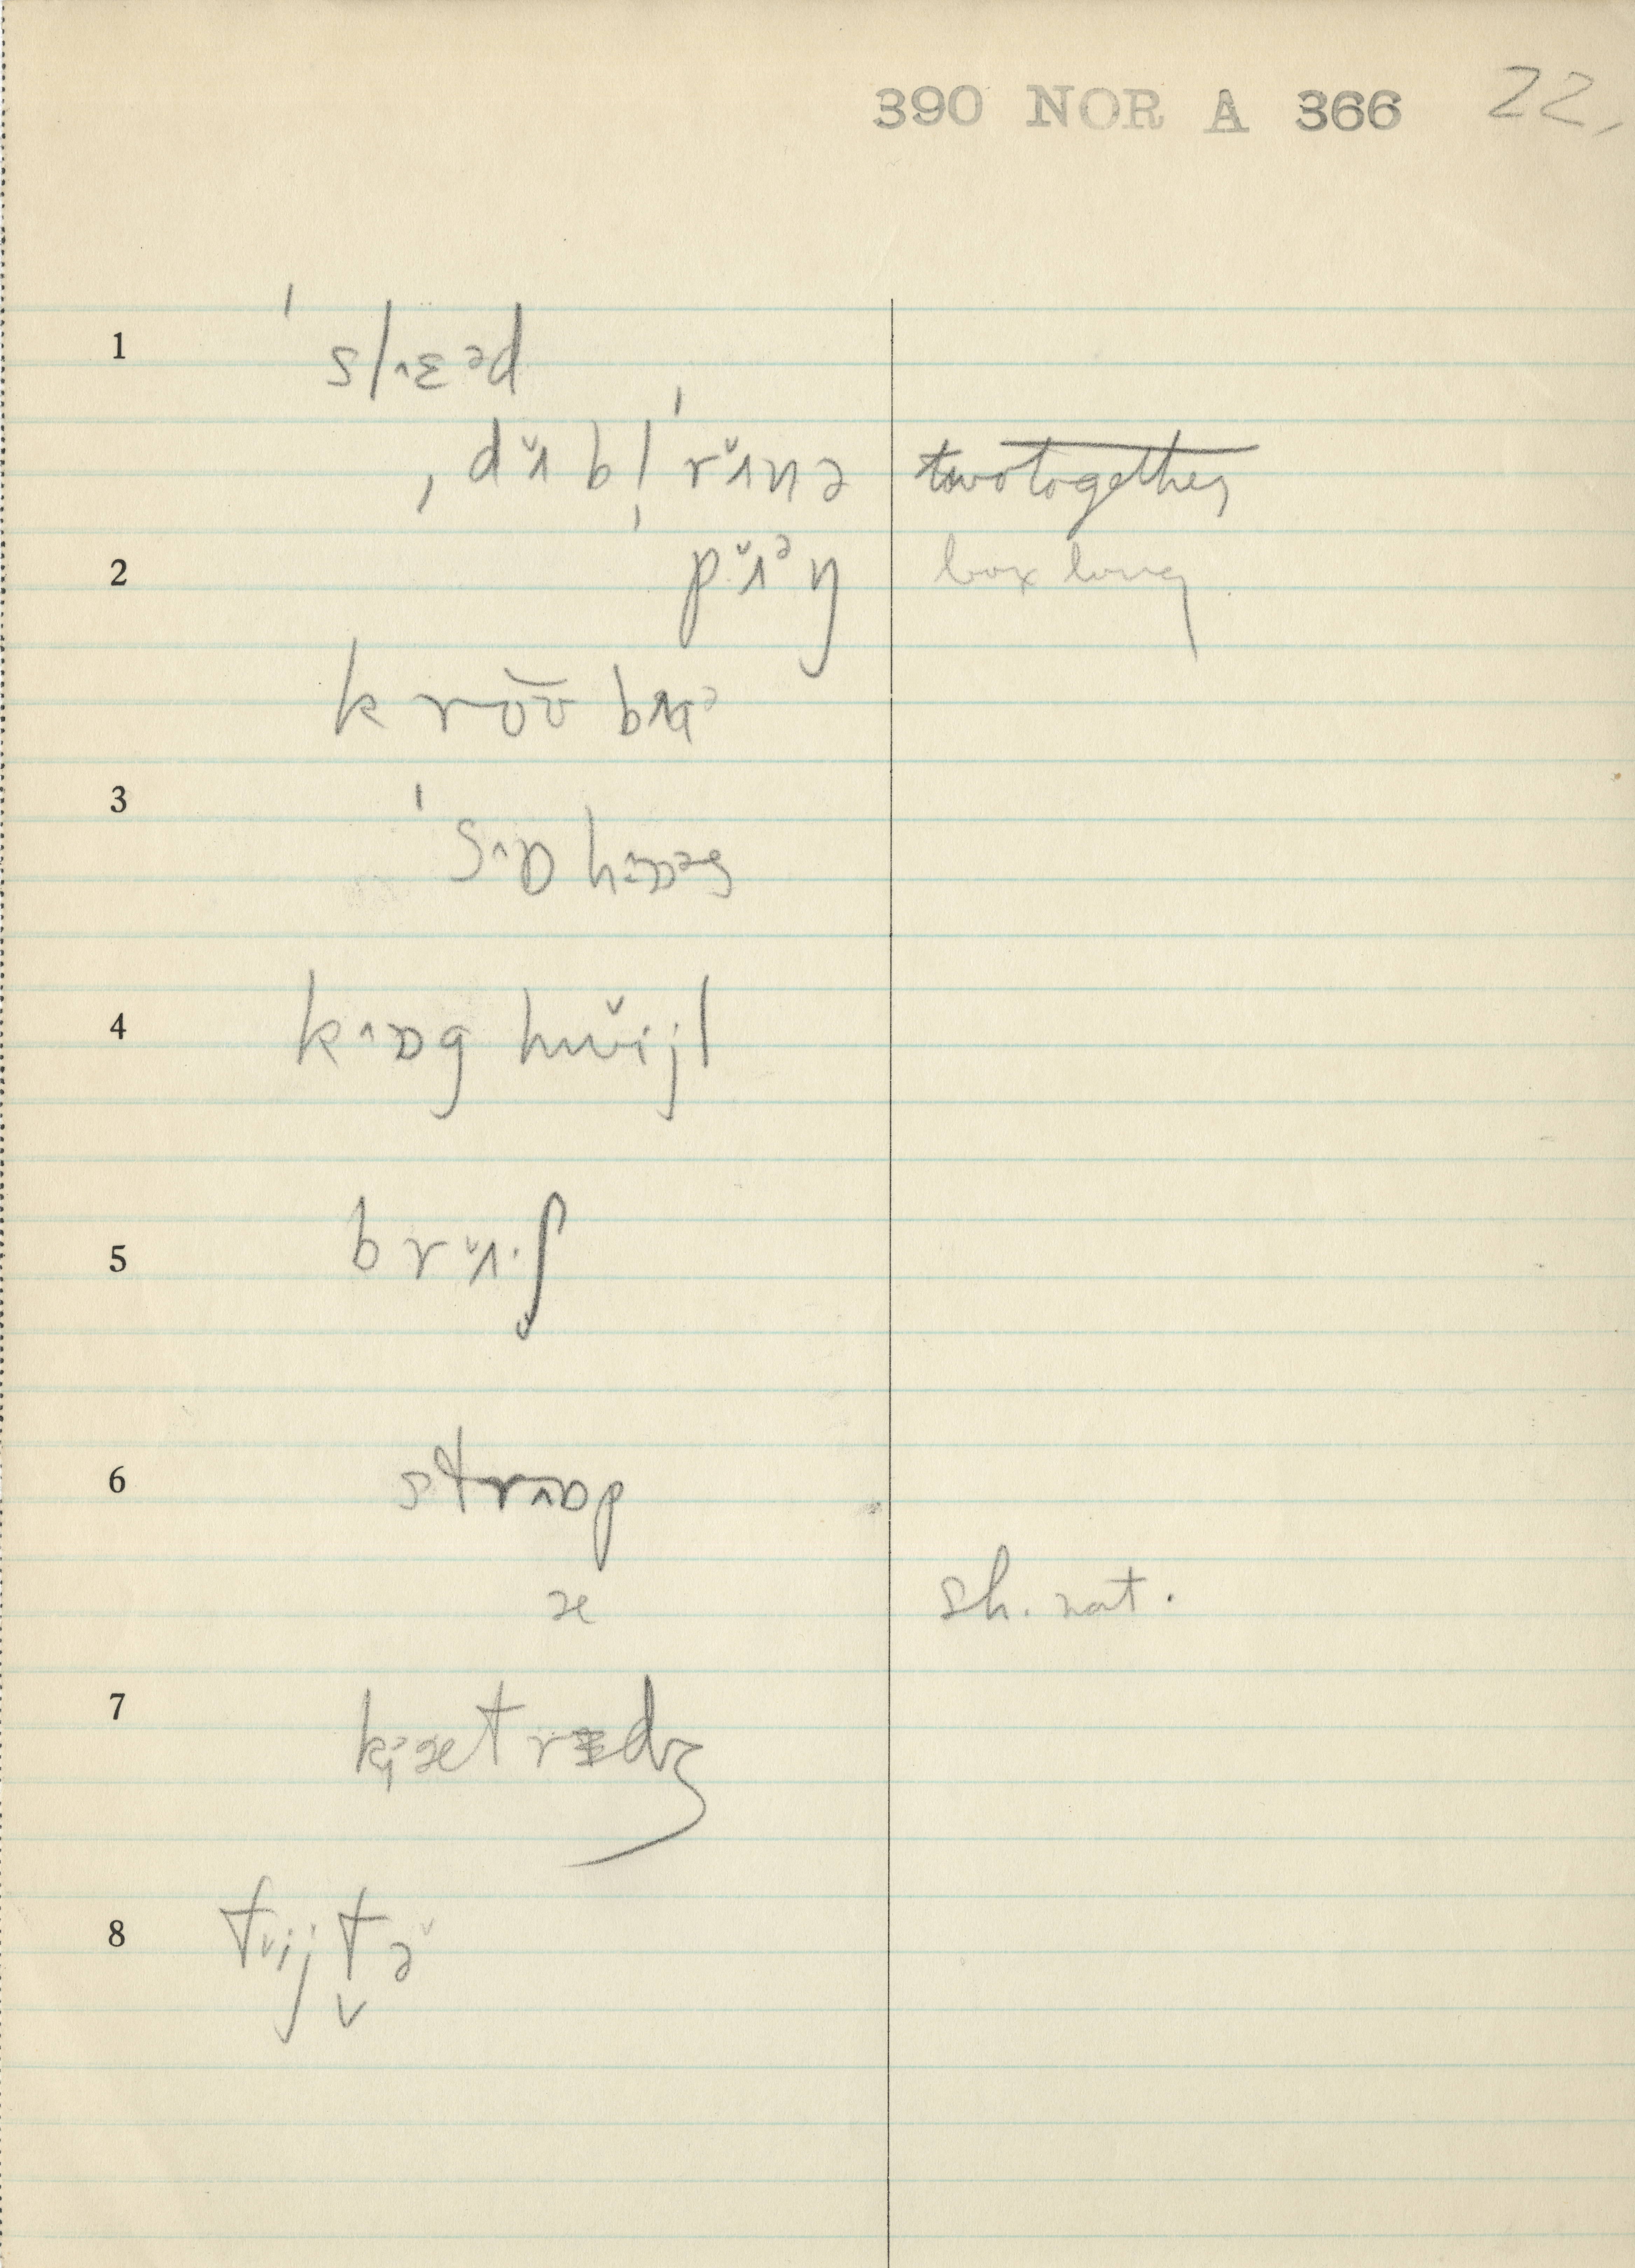 390 NOR A 366 22,
1 ˈslæ˄əd
ˌdʌ̌bl̩ˈrʌ̌nə two together
2 pʌ̌ᵊŋ box long
krʊ̆ʊ bɑᵊ
3 ˈsɒ˄hɒ˄əs
4 kɒ˄g hwɪ̌jl
5 brʌ̌·ʃ
6 strɒ˄p
æ sh. nat.
7 kætrɪdʒ
8 tijtə